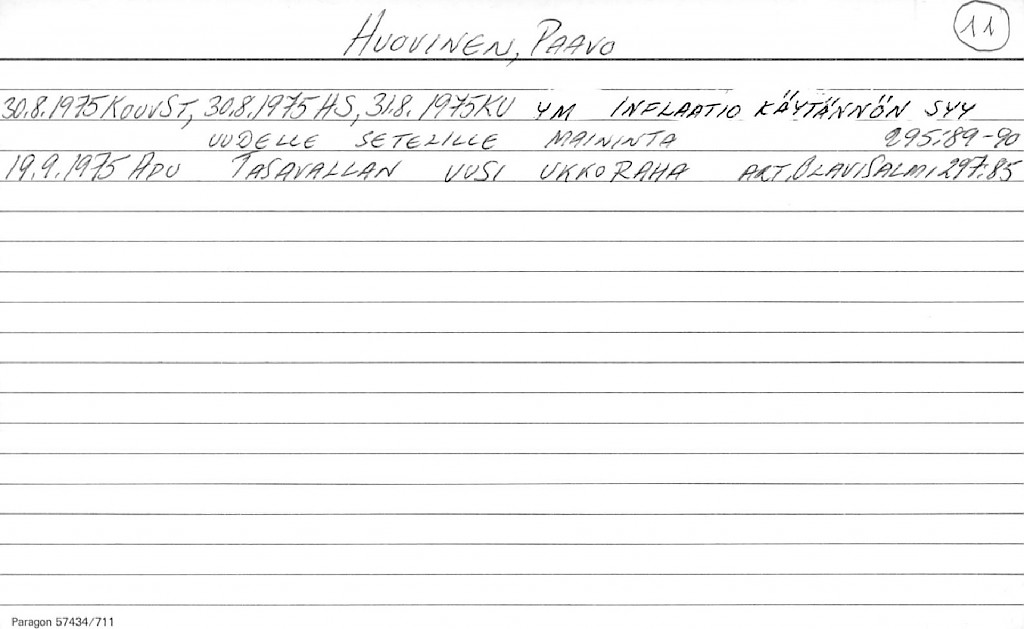 HUOVINEN, PAAVO
11
30.8.1975 KOUVST, 30.8.1975 HS, 31.8. 1975 KU YM INFLAATIO KÄYTÄNNÖN SYY
UUDELLE SETELILLE MAININTA 295:89-90
19.9.1975 APU TASAVALLAN UUSI UKKORAHA ART. OLAVI SALMI 297:85
Paragon 57434/711